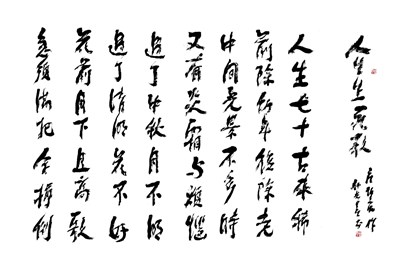 人生
作
人生七十古來稀
前除幼年後除老
中間光景不多時
又有炎霜与惱
過了中秋月不明
過了清明花不好
花前月下且高歌
急須滿把金樽倒